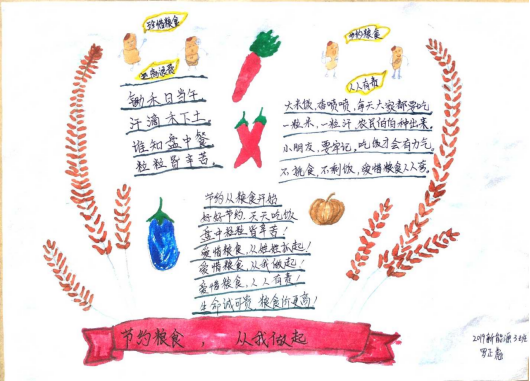 珍惜粮食
杜绝浪费
锄禾日当午
汗滴禾下土
谁知盘中餐
粒粒皆辛苦。
节约粮食
人人有责
大米饭，香喷喷，每天大家都要吃
一粒米，一粒汗，农民伯伯种出来。
小朋友，要牢记，吃饭才会有力气，
不挑食，不剩饭，爱惜粮食人人夸。
节约从粮食开始
好好节约，天天吃饭
盘中粒粒皆辛苦！
爱惜粮食，从
抓起！
爱惜粮食，从我做起！
爱惜粮食，人人有责！
生命诚可贵，粮食价更高！
节约粮食，从我做起
2019新能源3班
罗正